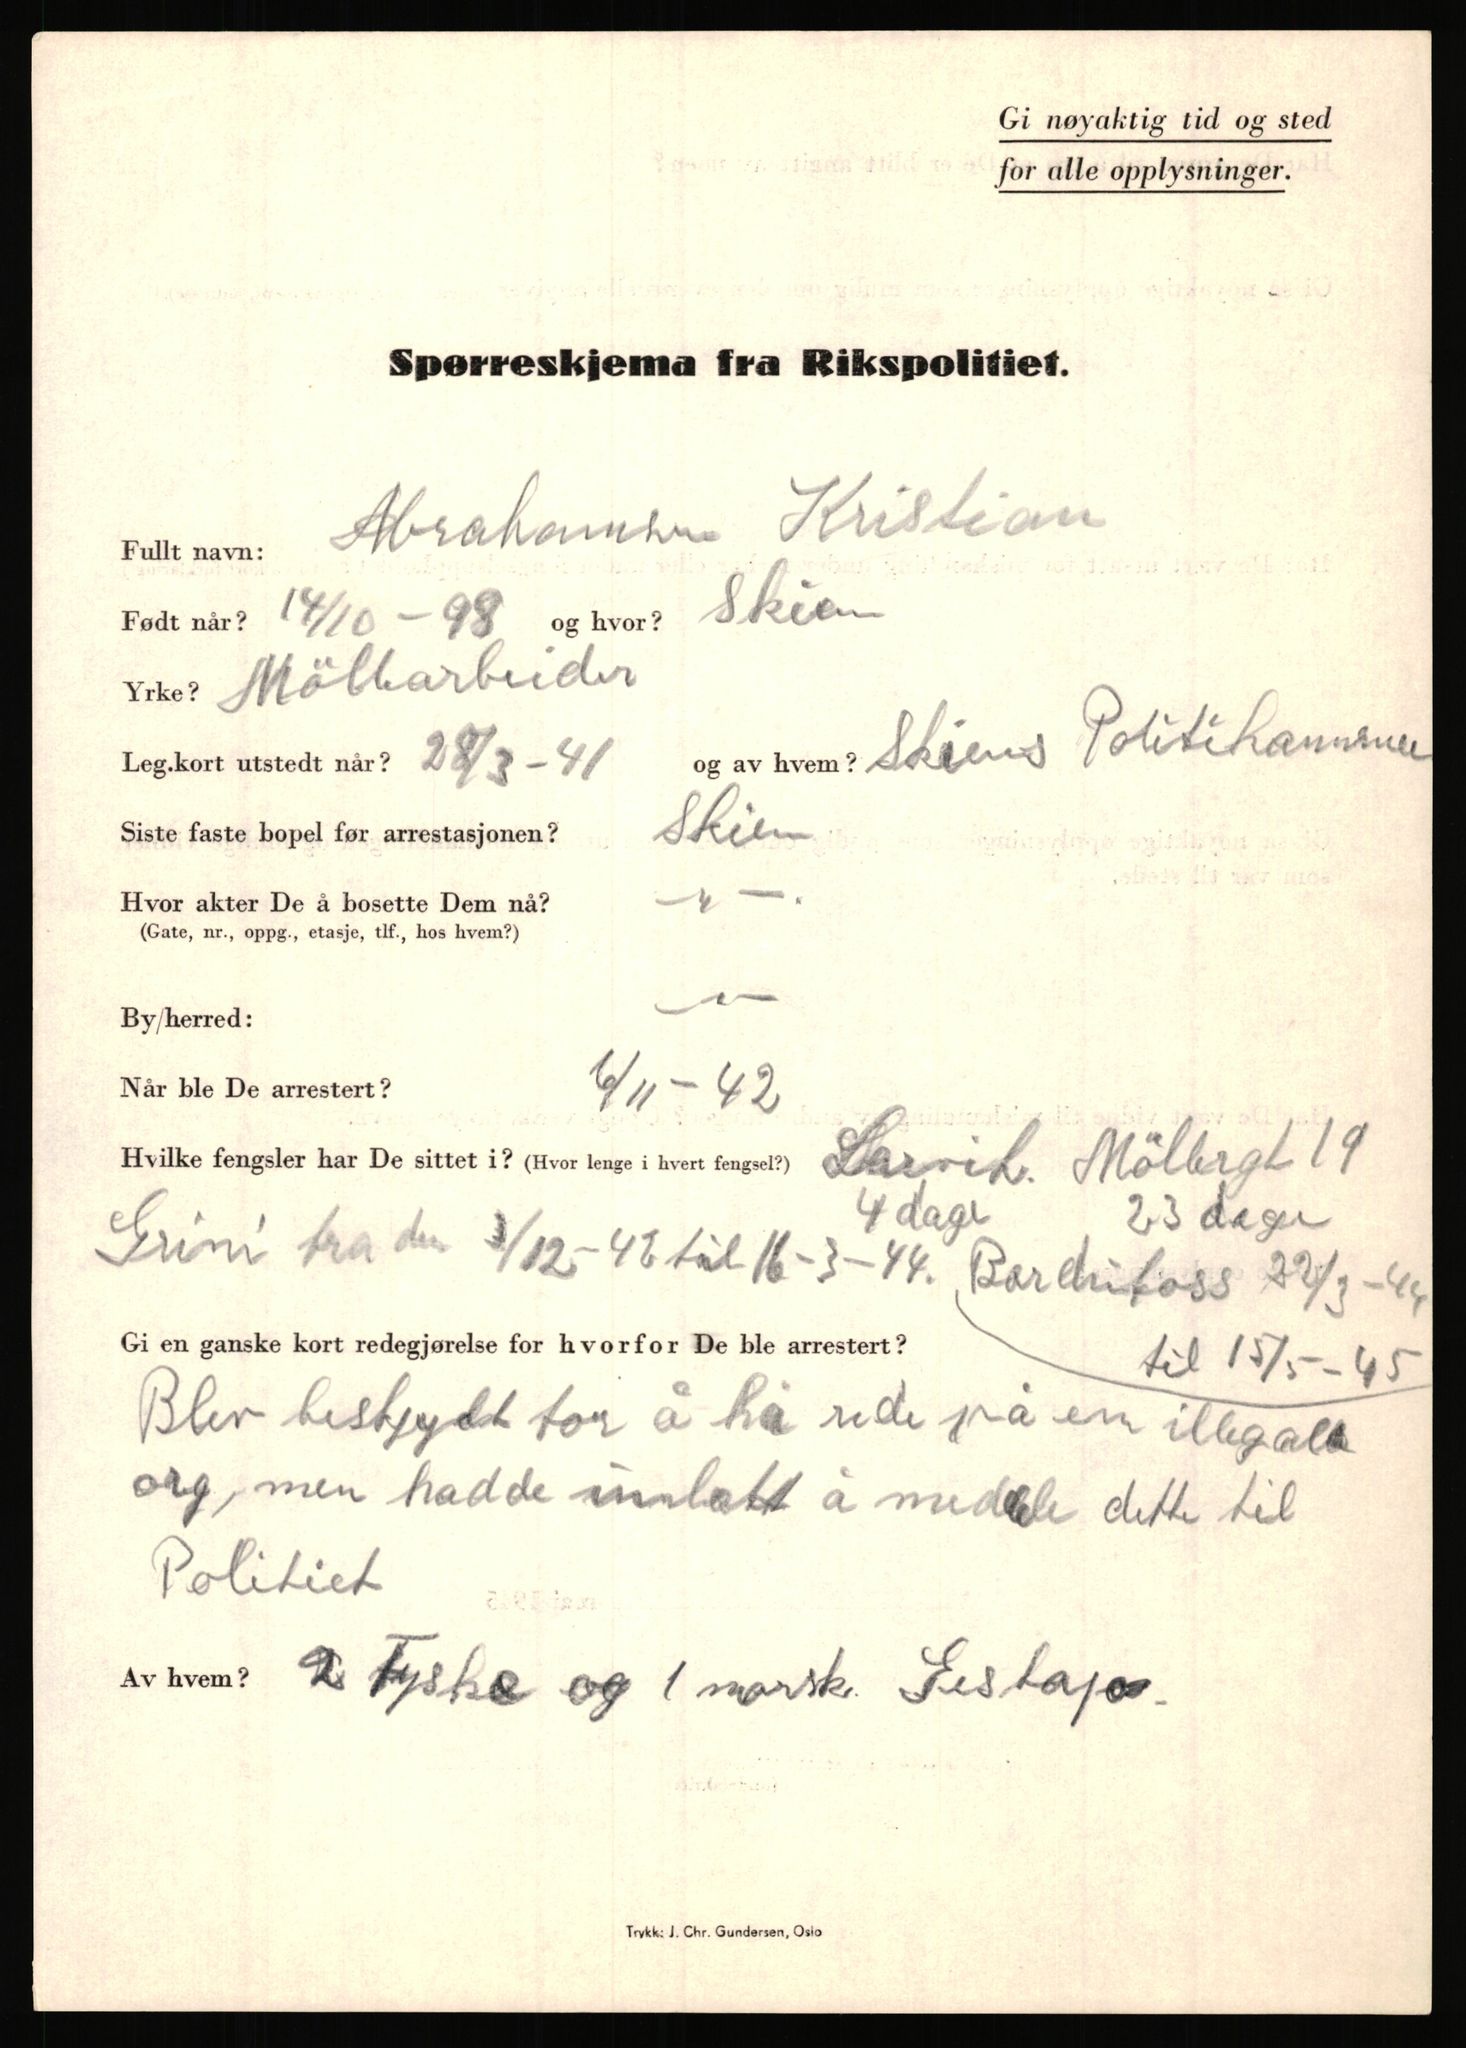 Gi nøyaktig tid og sted
for alle opplysninger.
Spørreskjema fra Rikspolitiet.
Fullt navn: Abrahamsen Kristian
Født når? 14/10 - 98 og hvor? Skien
Yrke? Möllearbeider
Leg.kort utstedt når? 28/3 - 41 og av hvem? Skiens Politikammer
Siste faste bopel før arrestasjonen? Skien
Hvor akter De å bosette Dem nå? -"-.
(Gate, nr., oppg., etasje, tlf., hos hvem?)
By/herred: -"-
Når ble De arrestert? 6/11 - 42
Hvilke fengsler har De sittet i? (Hvor lenge i hvert fengsel?) Larvik. Möllergt 19
4 dage 23 dager
Grini fra den 3/12 - 42 til 16 - 3 - 44. Bardufoss 22/3 - 44
til 15/5 - 45
Gi en ganske kort redegjørelse for hvorfor De ble arrestert?
Blev beskyldt for å ha rede på en illegale
org, men hadde innlatt å meddele dette til
Politiet
Av hvem? 2 Tyske og 1 norsk. Gestapo.
Trykk: J. Chr. Gundersen, Oslo